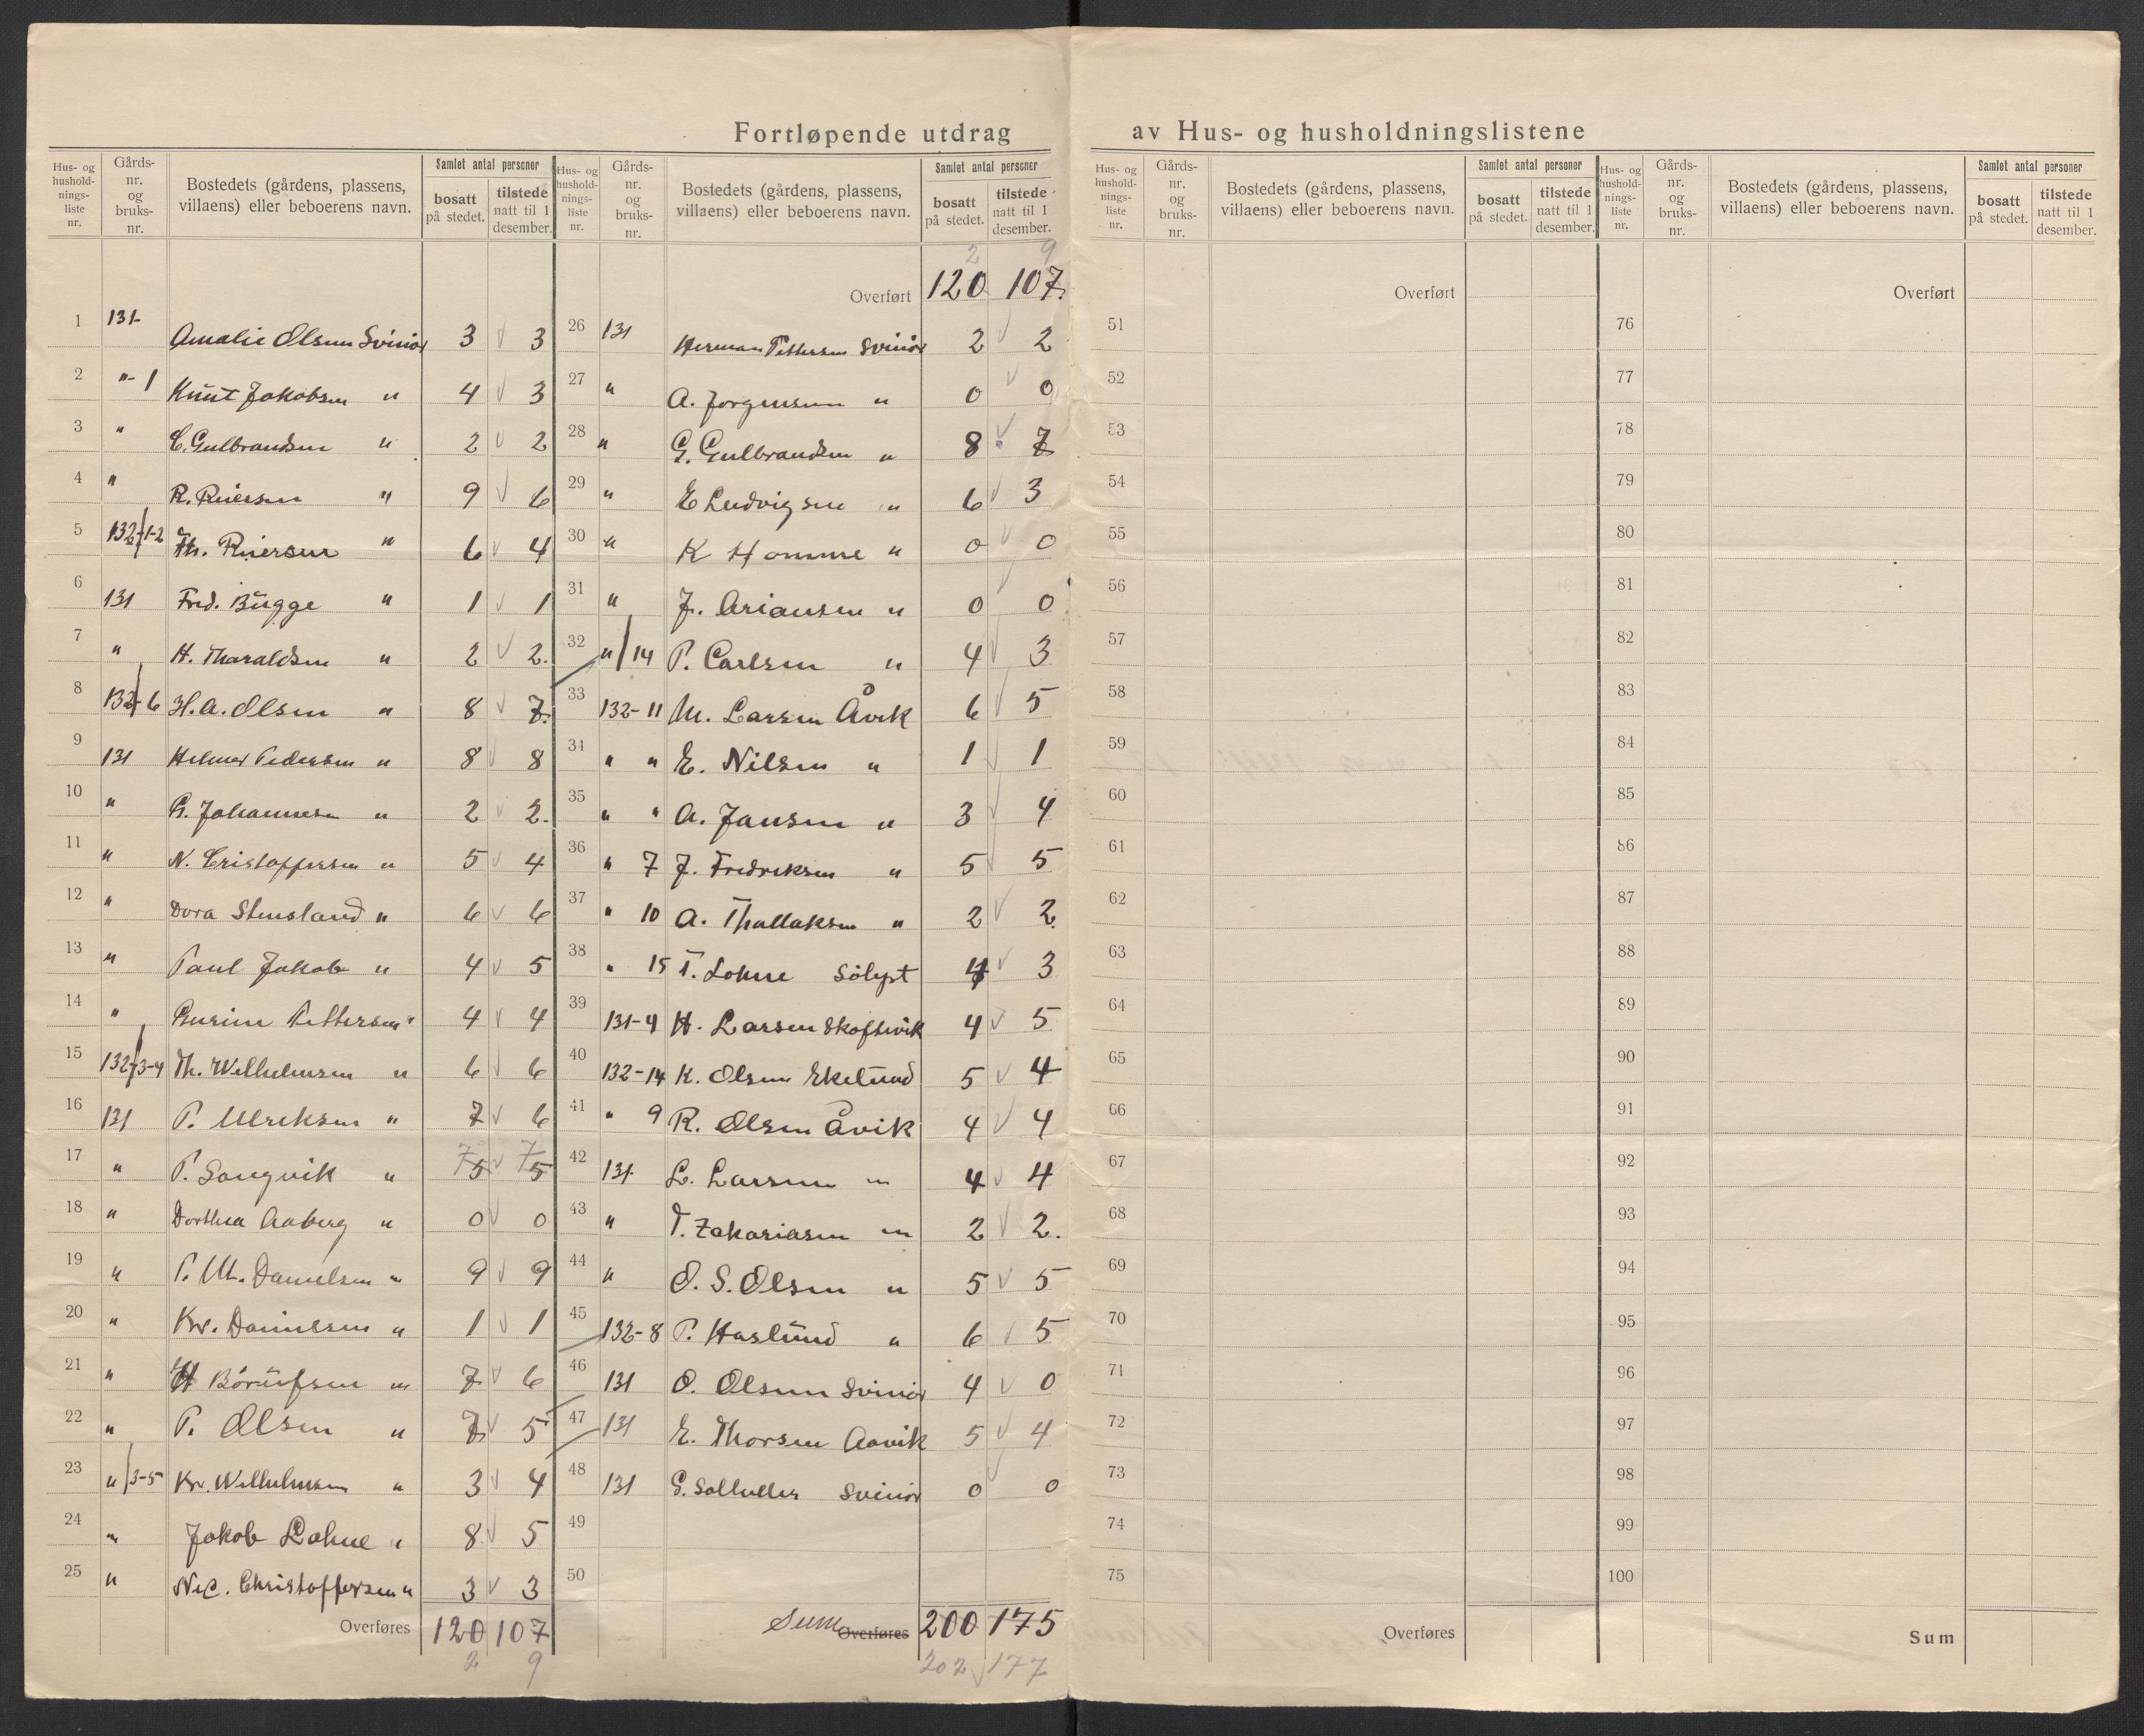 Fortløpende utdrag av Hus- og husholdningslistene
Hus- og hushold-nings-liste nr. | Gårds-nr. og bruks-nr. | Bostedets (gårdens, plassens, villaens) eller beboerens navn. | Samlet antal personer | bosatt på stedet. | tilstede natt til 1 desember.
1 131- Amalie Olsen Svinør 3 3
2 "-1 Knut Jakobsen " 4 3
3 " C. Gulbrandsen " 2 2
4 " R. Reiersen " 9 6
5 132/1-2 Th. Reiersen " 6 4
6 131 Fred. Bugge " 1 1
7 " H. Tharaldsen " 2 2.
8 132/6 H. A. Olsen " 8 7.
9 131 Helmer Pedersen " 8 8
10 " G. Johannesen " 2 2.
11 " N. Cristoffersen " 5 4
12 " Dora Stensland " 6 6
13 " Paul Jakob " 4 5
14 " Gurine Pettersen " 4 4
15 132/3-4 Th. Wilhelmsen " 6 6
16 131 P. Ulriksen " 7 6
17 " P. Sangvik " 7 5 7 5
18 " Dorthea Aaberg " 0 0
19 " P. M. Danielsen " 9 9
20 " Kr. Danielsen " 1 1
21 " H Börufsen " 7 6
22 " P. Olsen " 7 5
23 "/3-5 Kr. Wilhelmsen " 3 4
24 " Jakob Lohne " 8 5
25 " Nic. Christoffersen " 3 3
Overføres 120 107
2 9
Hus- og hushold-nings-liste nr. | Gårds-nr. og bruks-nr. | Bostedets (gårdens, plassens, villaens) eller beboerens navn. | Samlet antal personer | bosatt på stedet. | tilstede natt til 1 desember.
2 9
Overført 120 107.
26 131 Herman Pettersen Svinör 2 2
27 " A. Jorgensen " 0 0
28 " G. Gulbrandsen " 8 7
29 " E Ludvigsen " 6 3
30 " K Homme " 0 0
31 " J. Ariansen " 0 0
32 "/14 P. Carlsen " 4 3
33 132-11 M. Larsen Åvik 6 5
34 " " E. Nilsen " 1 1
35 " " A. Jansen " 3 4
36 " 7 J. Fredriksen " 5 5
37 " 10 A. Thallaksen " 2 2.
38 " 15 T. Lohne Sölyst 4 3
39 131-4 H. Larsen Skoftevik 4 5
40 132-14 K. Olsen Ekelund 5 4
41 " 9 R. Olsen Åvik 4 4
42 131 L. Larsen " 4 4
43 " T. Zakariasen " 2 2.
44 " O. S. Olsen " 5 5
45 132-8 P. Haslund " 6 5
46 131 O. Olsen Svinör 4 0
47 131 E. Thorsen Aavik 5 4
48 131 Svinör 0 0
49
50
Sum Overføres 200 175
202 177
Hus- og hushold-nings-liste nr. | Gårds-nr. og bruks-nr. | Bostedets (gårdens, plassens, villaens) eller beboerens navn. | Samlet antal personer | bosatt på stedet. | tilstede natt til 1 desember.
Overført
51
52
53
54
55
56
57
58
59
60
61
62
63
64
65
66
67
68
69
70
71
72
73
74
75
Overføres
Hus- og hushold-nings-liste nr. | Gårds-nr. og bruks-nr. | Bostedets (gårdens, plassens, villaens) eller beboerens navn. | Samlet antal personer | bosatt på stedet. | tilstede natt til 1 desember.
Overført
76
77
78
79
80
81
82
83
84
85
86
87
88
89
90
91
92
93
94
95
96
97
98
99
100
Sum